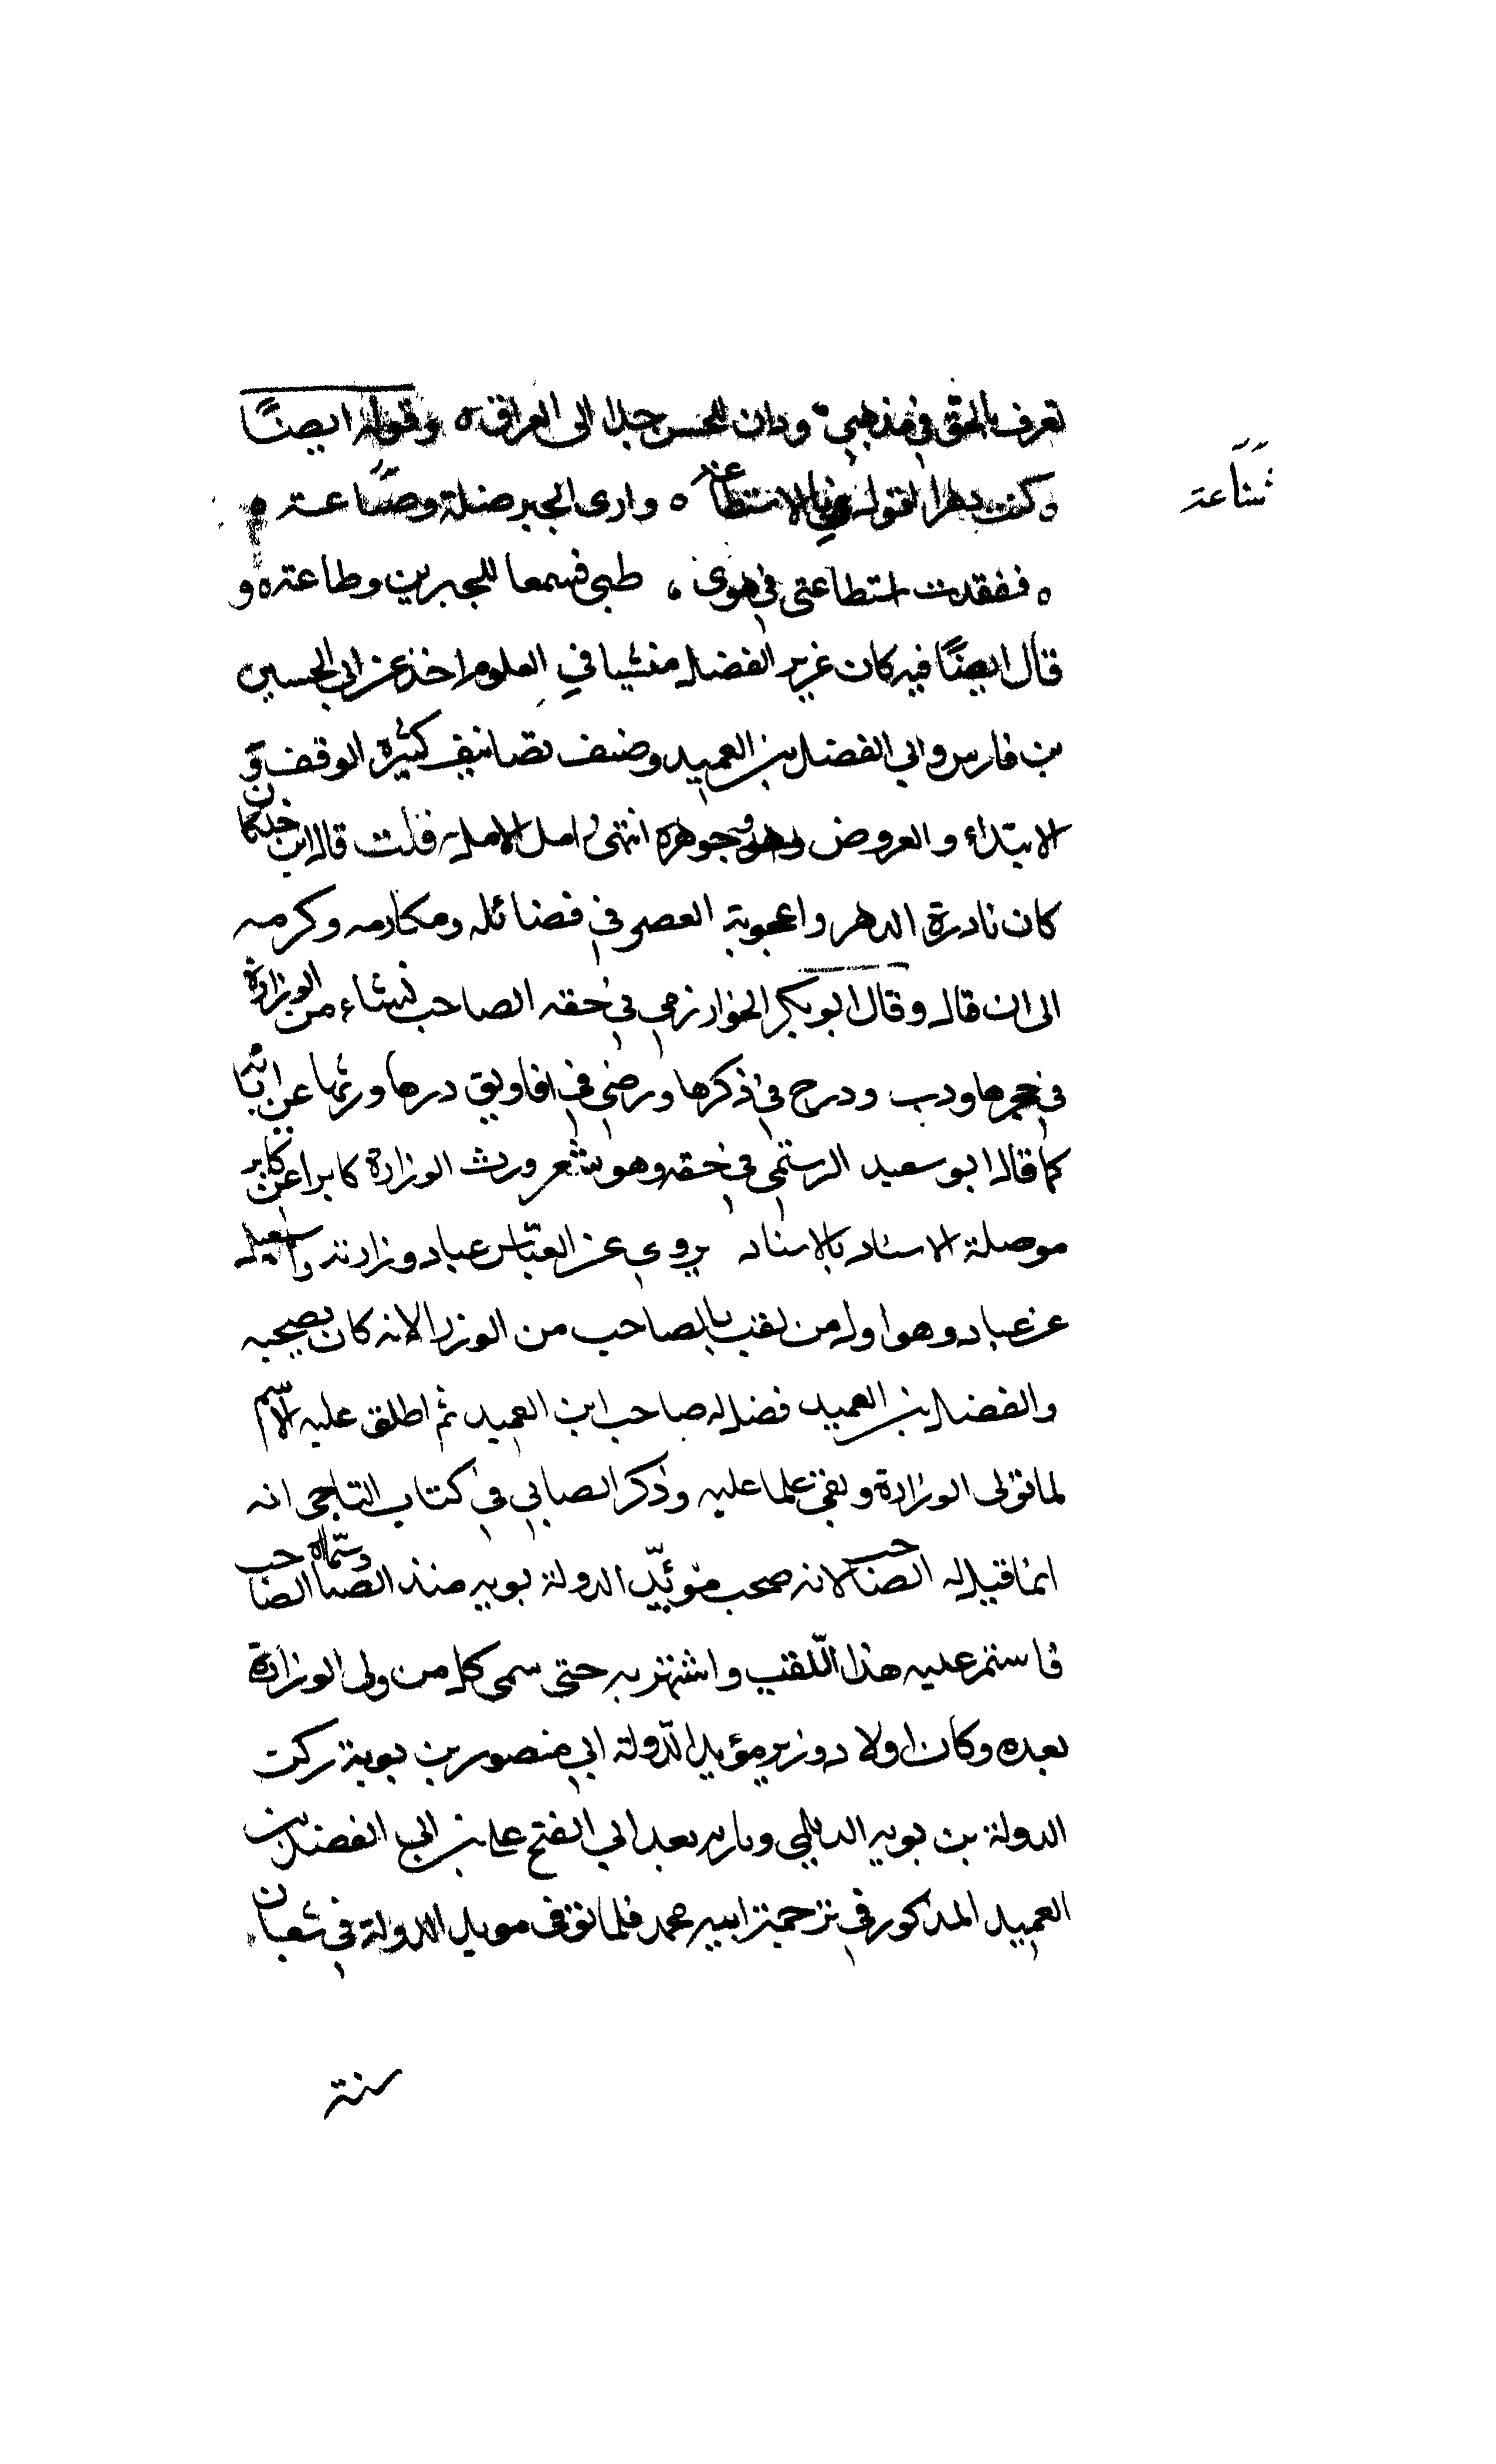 تعرف بالحق في مذهبي ودان للحسن جبل الى العراق وقوله ايضًا
كنت دهرا اقول بالاستطاعة وارى الجبر ضلة وضناعة
شناعة
ففقدت استطاعتي في هوى طبي فسمعا للمجبرين وطاعة و
قال ايضًا فيه كان غزير الفضل منشيا في العلوم اخذ عن ابي الحسين
بن فارس وابي الفضل بن العميد وصنف تصانيف كثيرة الوقف و
الابتداء والعروض وهو جوهرة انتهى امل الامل قلت قال ابن خلكان
كان نادرة الدهر واعجوبة العصر في فضائله ومكارمه وكرمه
الى ان قال وقال ابو بكر الخوارزمي في حقه الصاحب نشاء من الوزارة
في حجرها ودب ودرج في ذكرها ورضي في افاويق درها ورثها عن ابائه
كما قال ابو سعيد الرستمي في حقه وهو شعر ورث الوزارة كابرا عن كابر
موصلة الاسناد بالاسناد يروي عن العباس عباد وزارته واسمعيل
عن عباد وهو اول من لقب بالصاحب من الوزرا لانه كان يصحبه
والفضل بن العميد فضل له صاحب ابن العميد ثم اطلق عليه الاسم
لما تولى الوزارة وبقي علما عليه وذكر الصابي في كتاب التاجي انه
انما قيل له الصاحب لانه صحب مؤئيّد الدولة بويه منذ الصبا وسمّاه الصاحب
فاستمر عليه هذا اللّقب واشتهر به حتى سمى كل من ولى الوزارة
بعده وكان اولا دوزير مؤيد الدّولة ابي منصور بن بوية ركن
الدولة بن بويه الديلمي وباريه بعد ابي الفتح علي بن ابي الفضل بن
العميد المذكور في ترجمة ابيه محمد فلما توفى مويد الدولة في شعبان
سنة